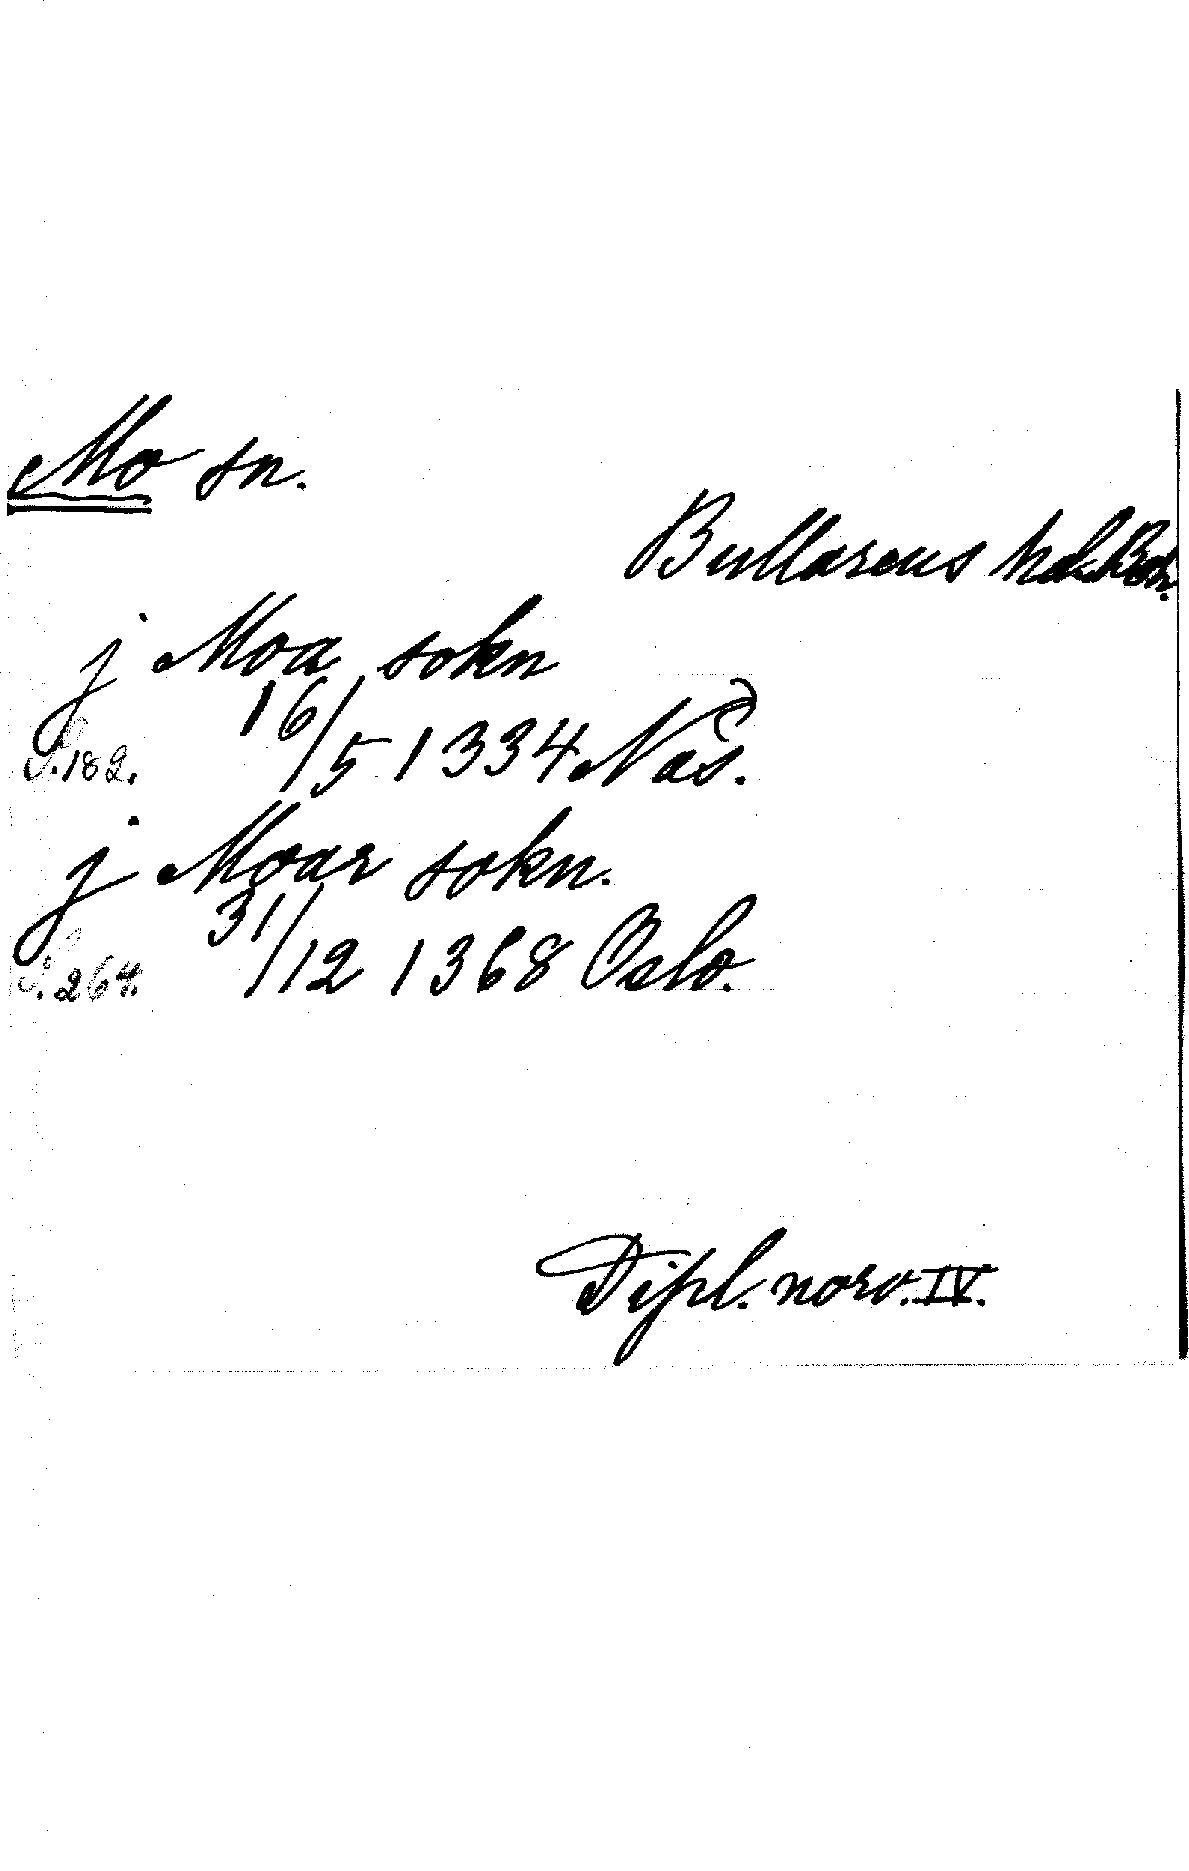 Mo sn.
Bullarens hd. Boh.
j Moa sokn
S. 182. 16/5 1334 Nās.
j Moar sokn.
S. 264. 31/12 1368 Oslo.
Dipl. norv. IV.